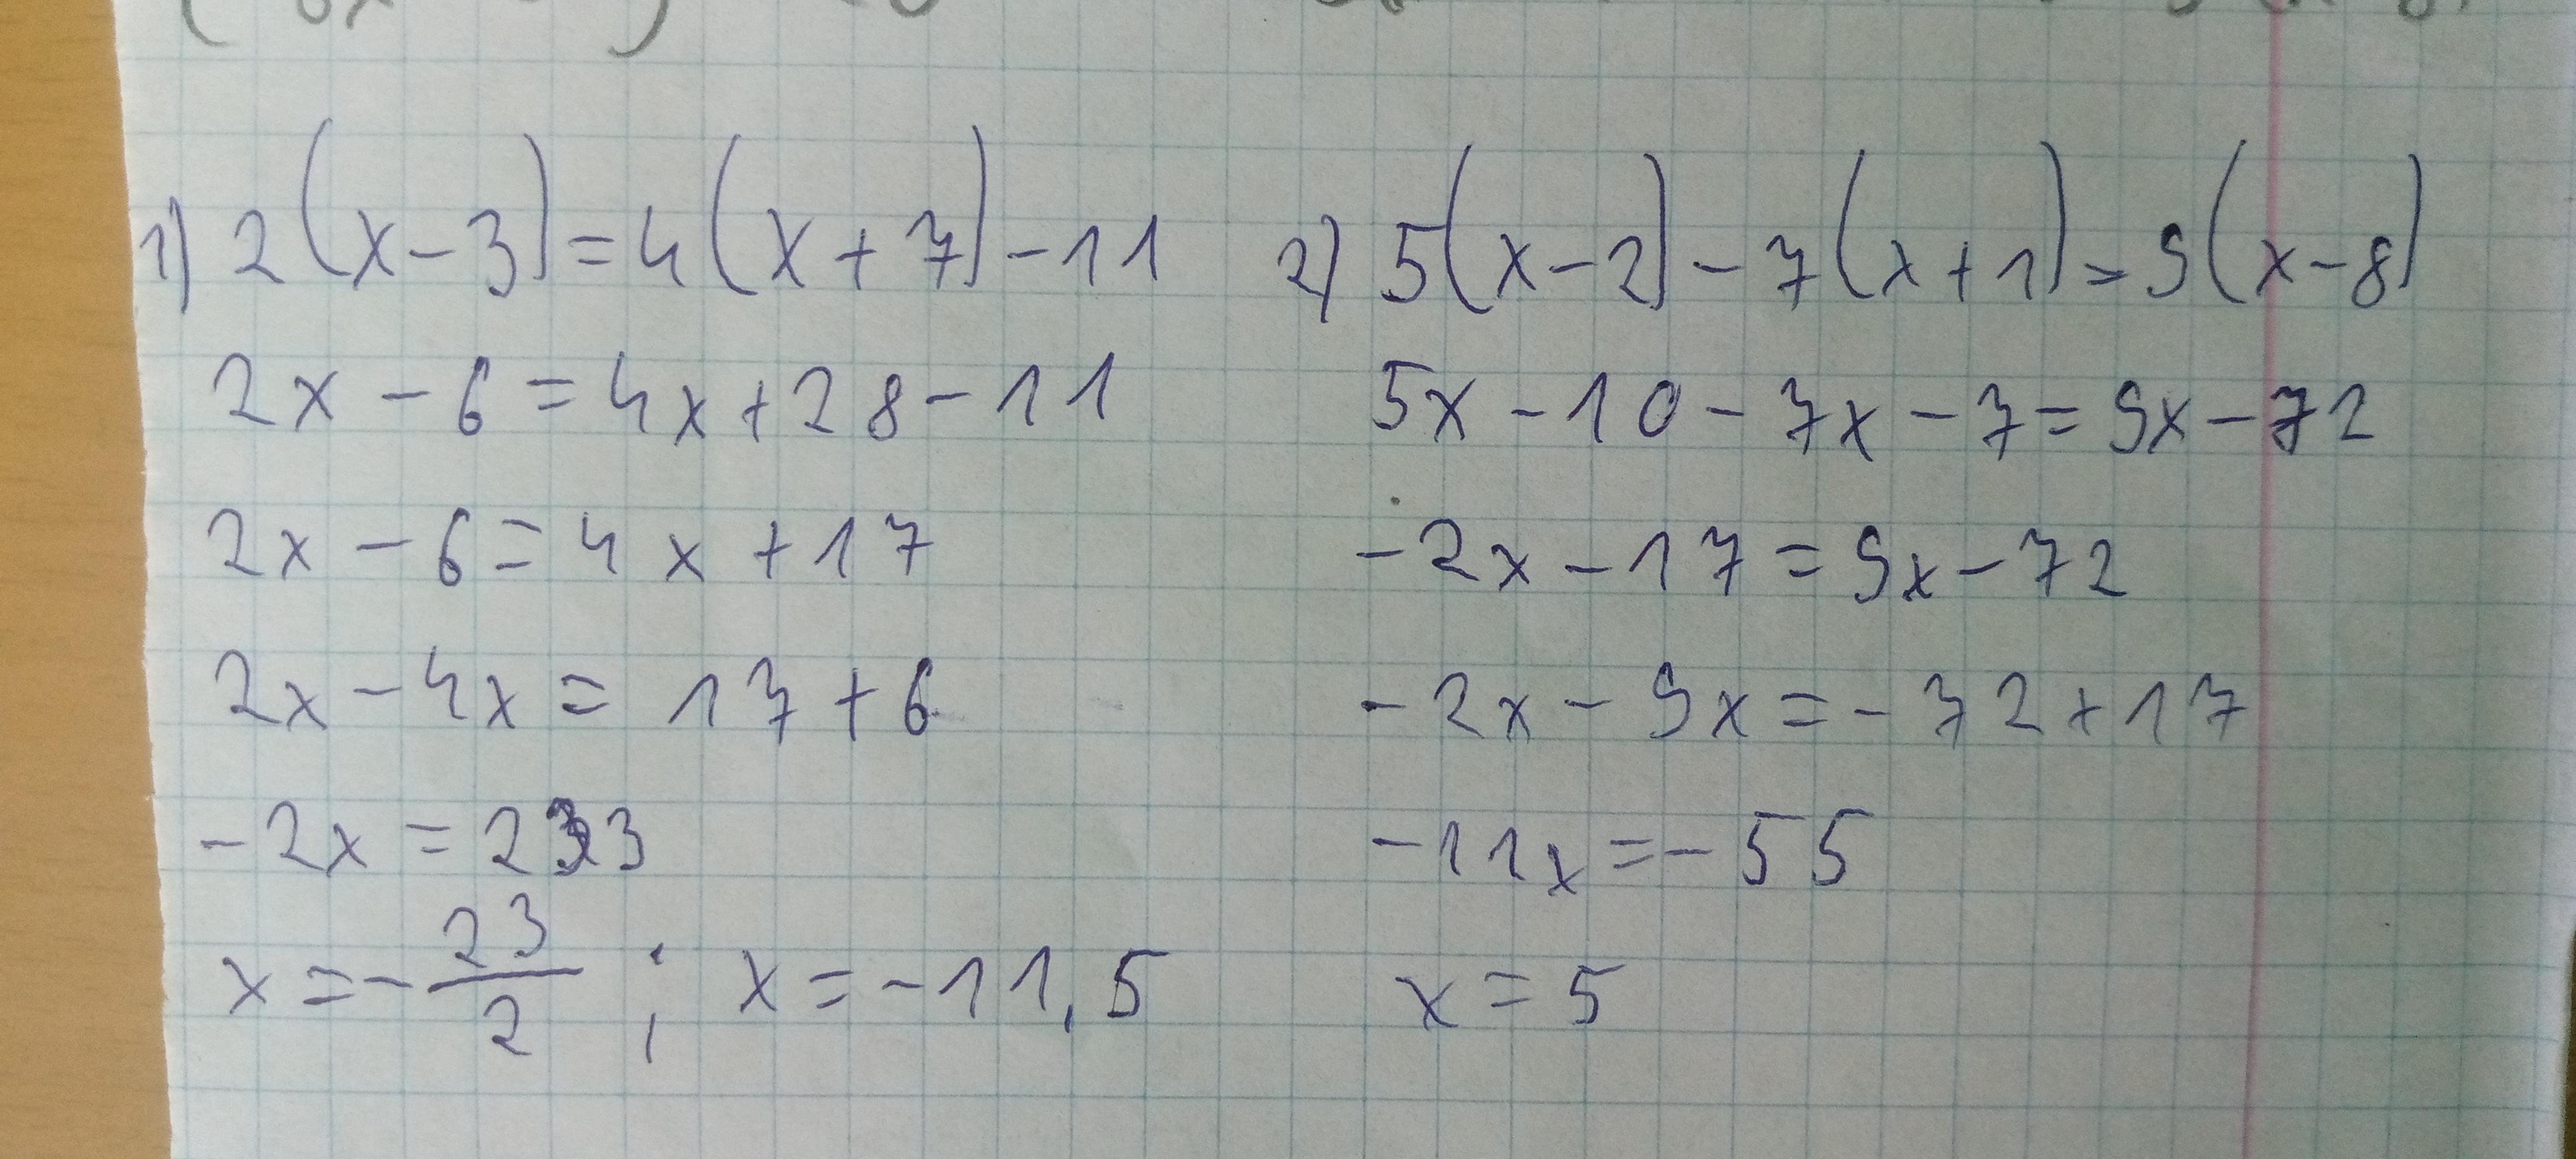 1) 2(x-3)=4(x+7)-11
2x-6=4x+28-11
2x-6=4x+17
2x-4x=17+6
-2x=23
x=-23/2; x=-11,5
2) 5(x-2)-7(x+1)=9(x-8)
5x-10-7x-7=9x-72
-2x-17=9x-72
-2x-9x=-72+17
-11x=-55
x=5